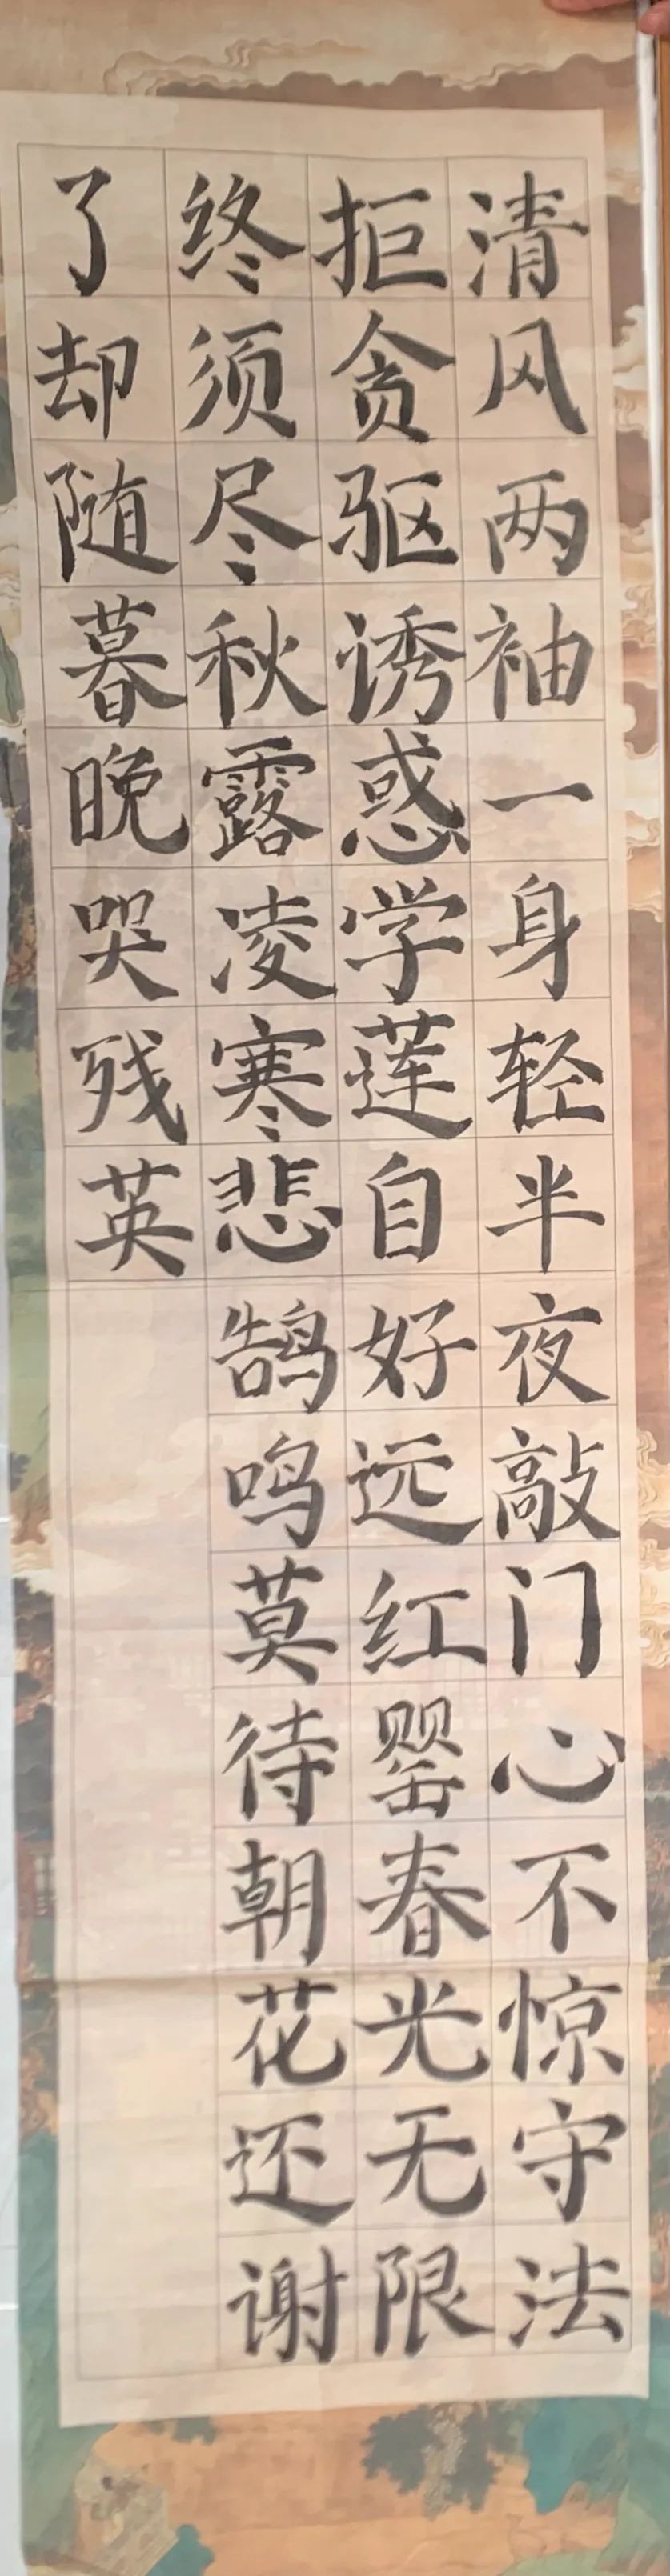 清风两袖一身轻半夜敲门心不惊守法
拒贪驱诱惑学莲自好远红罂春光无限
终须尽秋露凌寒悲鹄鸣莫待朝花还谢
了却随暮晚哭残英